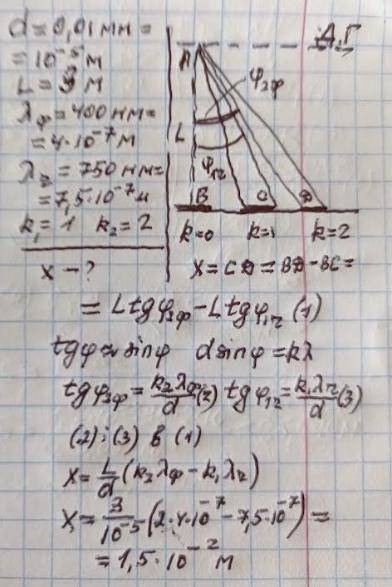 d = 0,01 мм =
= 10⁻⁵ м
L = 3 м
λф = 400 нм =
= 4·10⁻⁷ м
= 750 нм =
= 7,5·10⁻⁷ м
k₁ = 1 k₂ = 2
x – ?
Д.Г
A
φ₂ф
L
B C D
k=0 k=1 k=2
x = CD = BD – BC =
= Ltgφ₂ф – Ltgφ₁ч (1)
tgφ ≈ sinφ dsinφ = kλ
tgφ₂ф = k₂λф/d (2) tgφ₁ч = k₁λч/d (3)
(2) i (3) в (1)
x = L/d (k₂λф – k₁λч)
x = 3/10⁻⁵ (2·4·10⁻⁷ – 7,5·10⁻⁷) =
= 1,5·10⁻² м